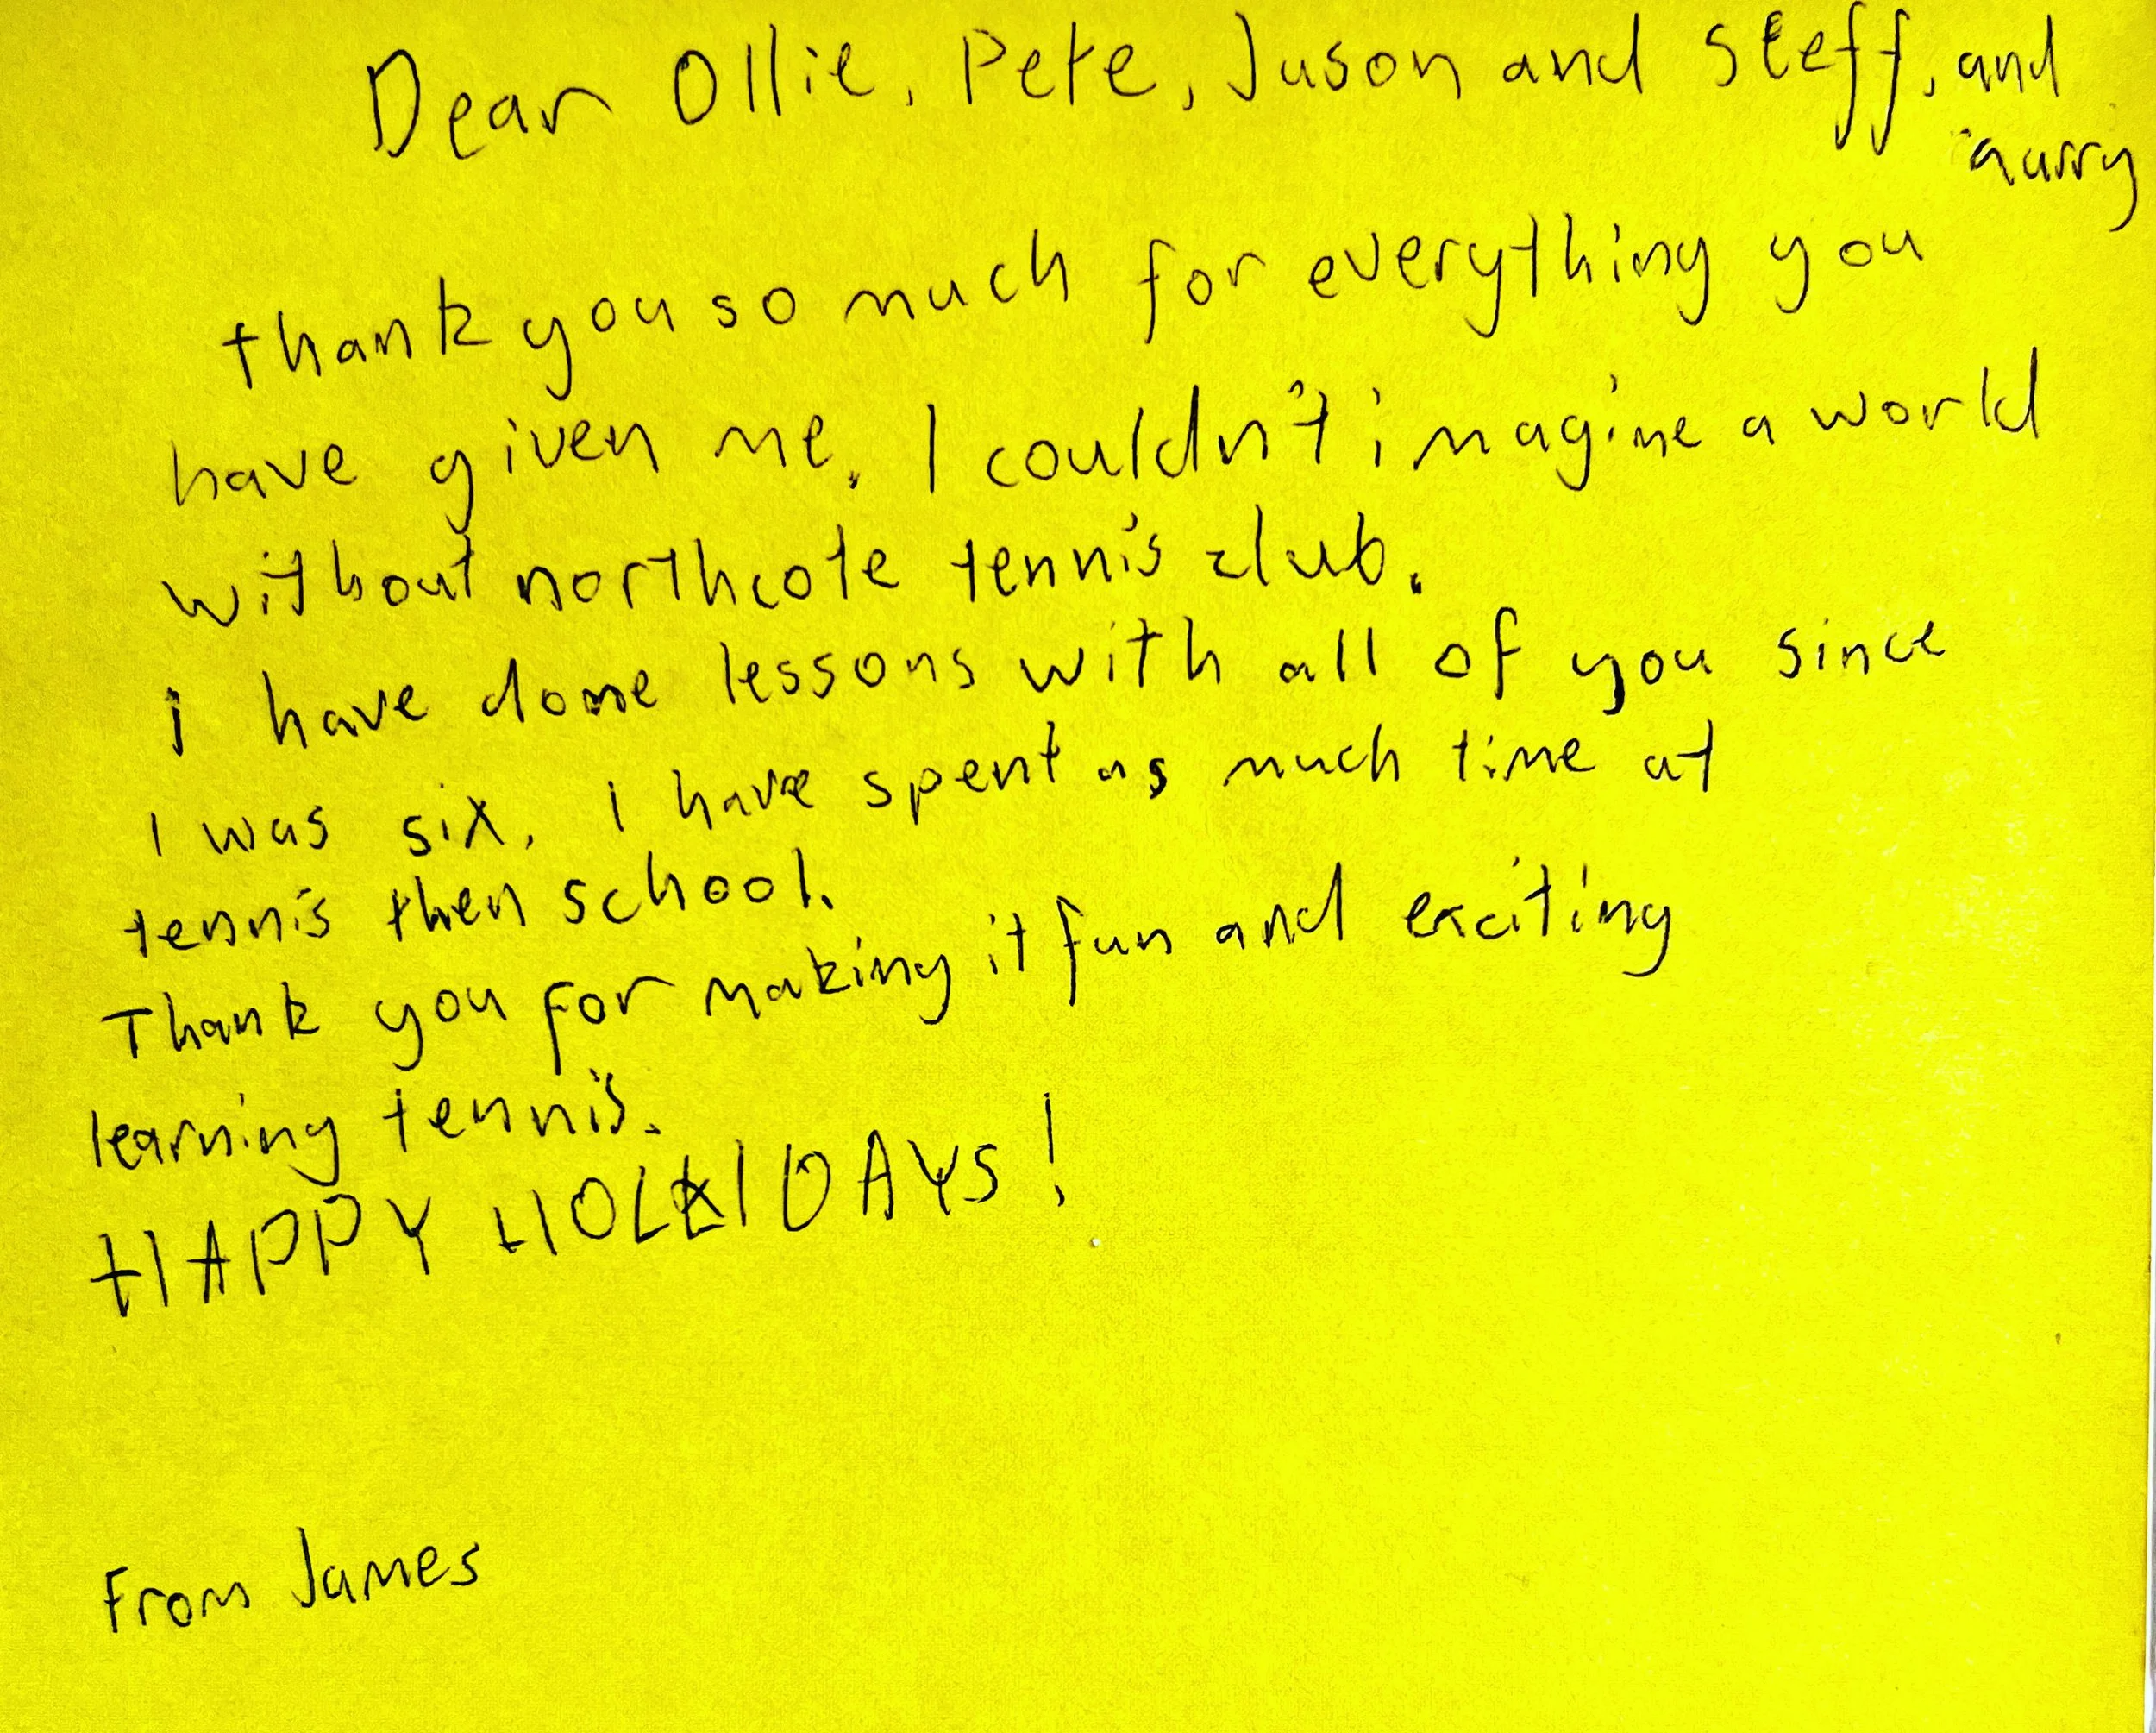 Dear Ollie, Pete, Jason and Steff, and
harry
thank you so much for everything you
have given me. I couldn't imagine a world
without northcote tennis club.
i have done lessons with all of you since
I was six, I have spent as much time at
tennis then school.
Thank you for making it fun and exciting
learning tennis.
HAPPY HOLIDAYS!
From James